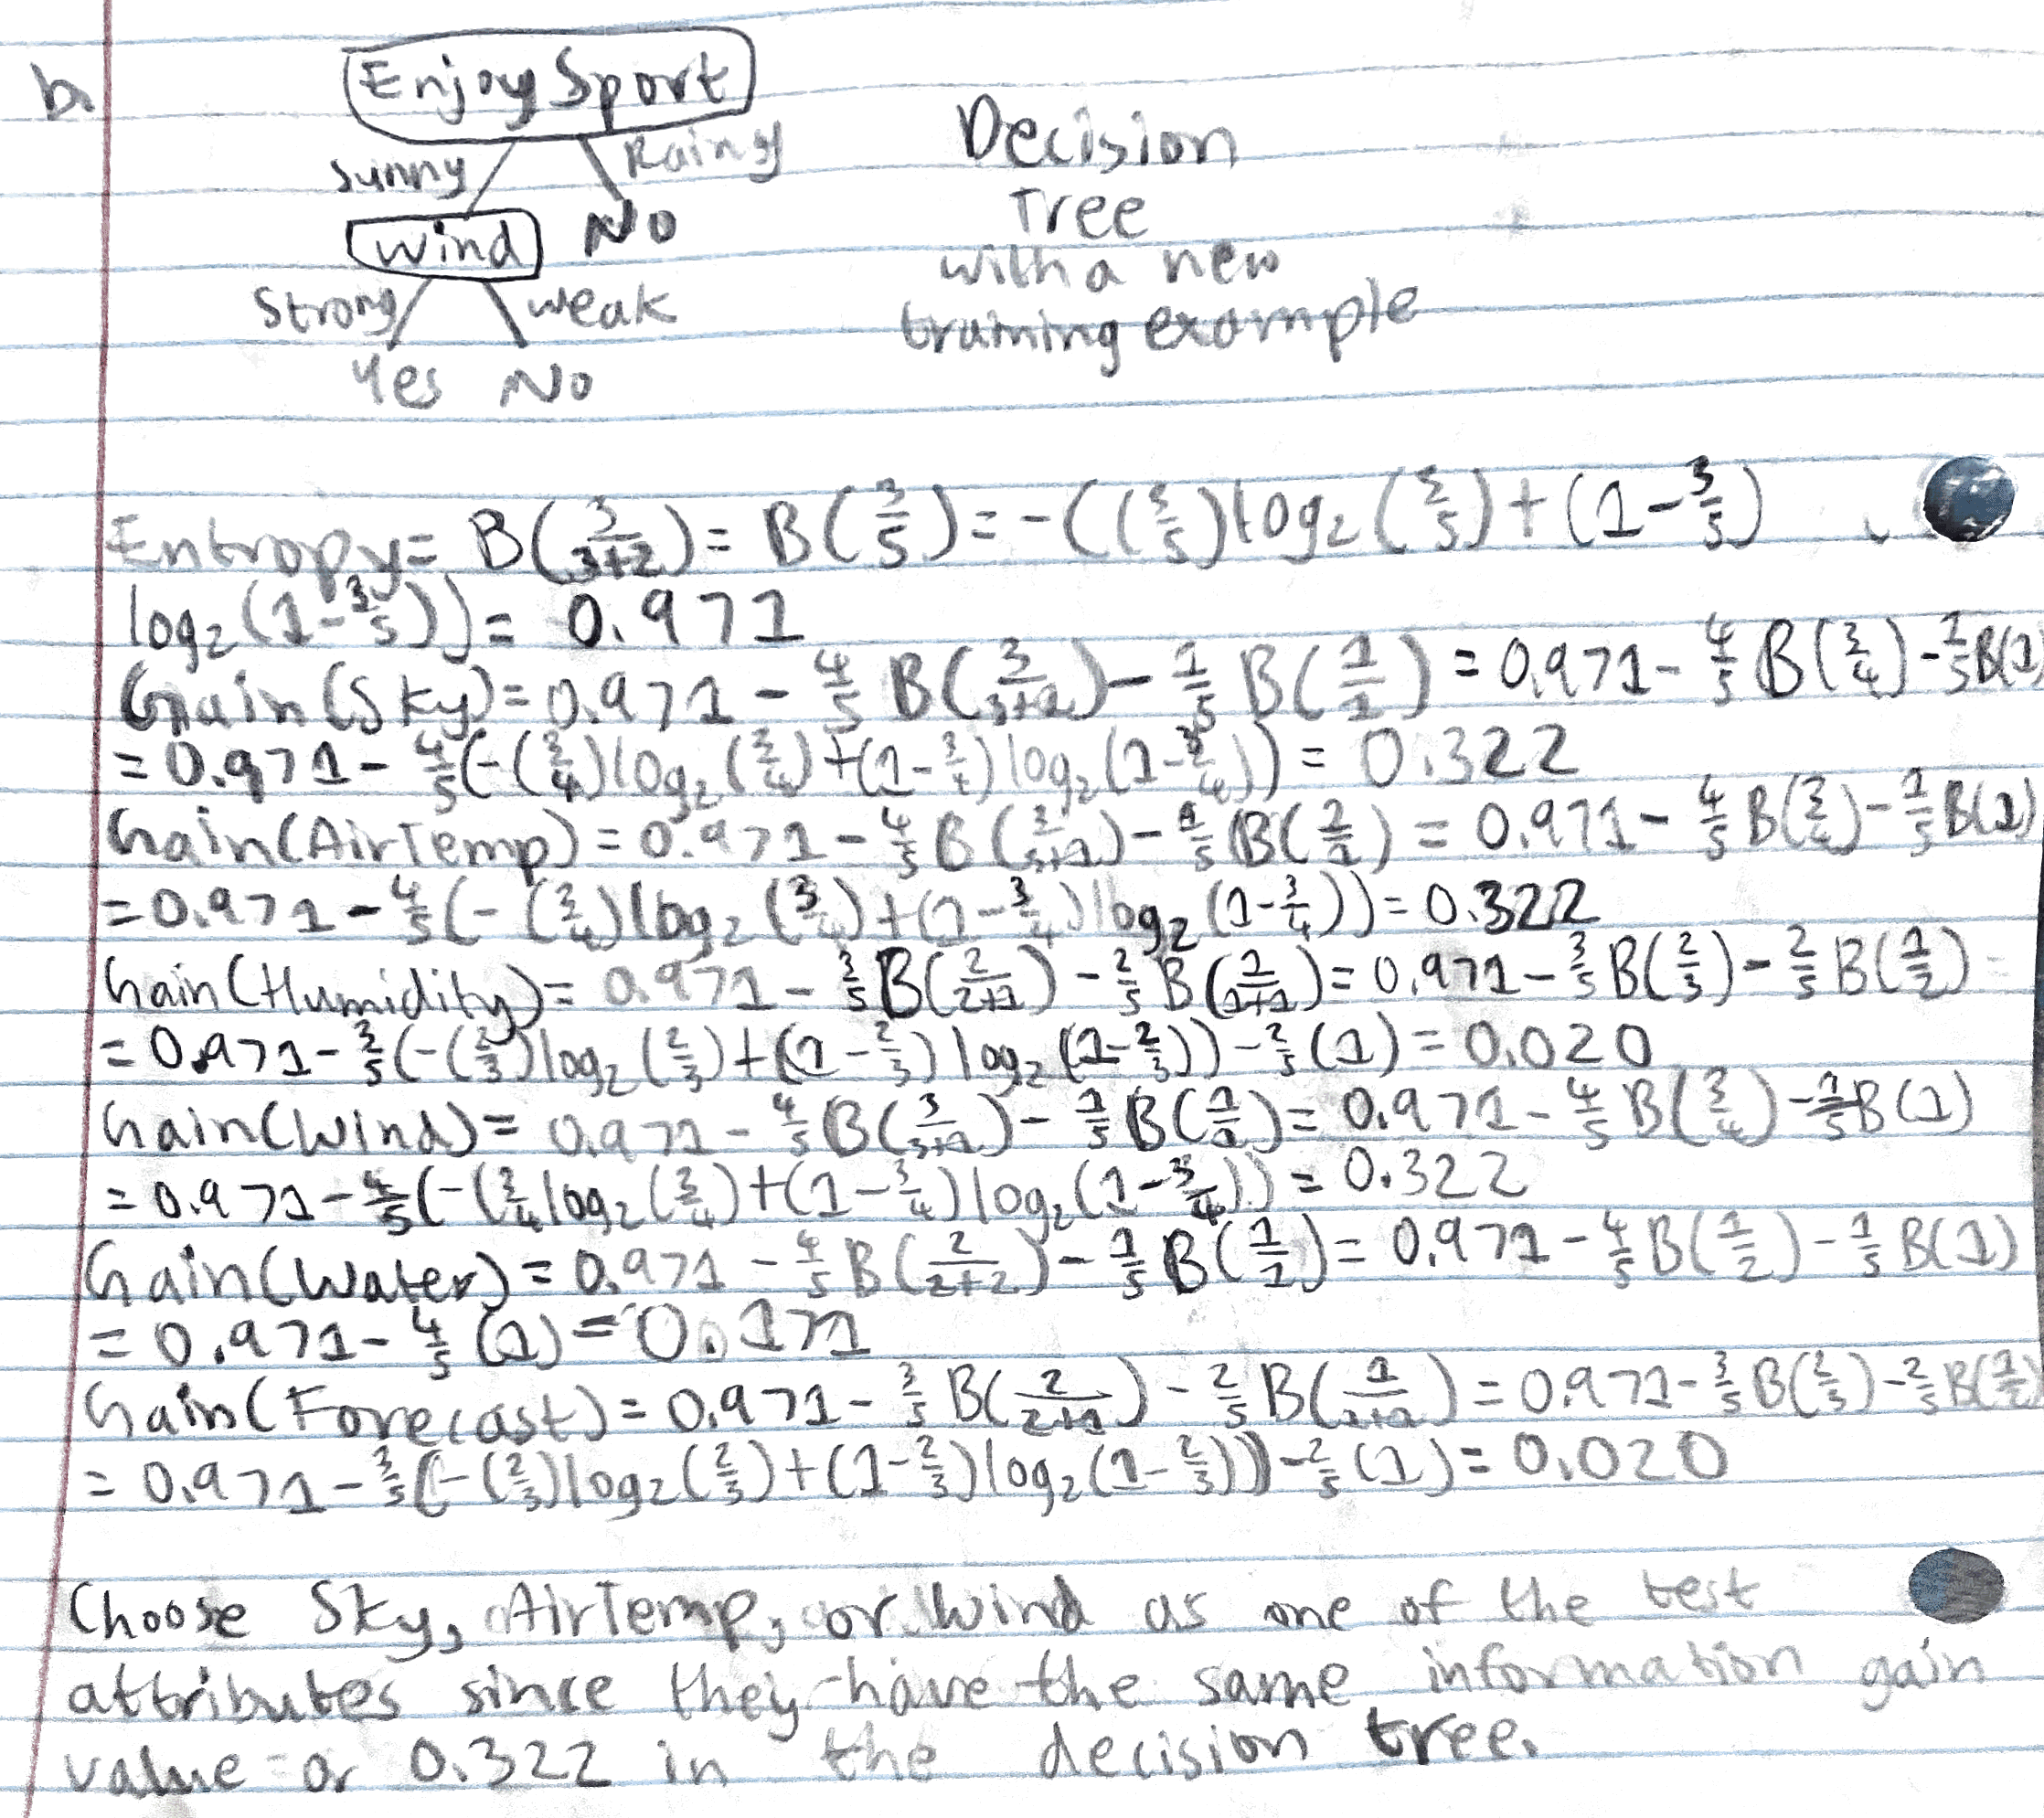 b.
Enjoy Sport
Sunny Rainy
Wind No
Strong weak
Yes No
Decision
Tree
with a new
training example
Entropy = B(3/(3+2)) = B(3/5) = -((3/5)log₂(3/5)+(1-3/5)
log₂(1-3/5)) = 0.971
Gain(Sky) = 0.971 - 4/5 B(3/(3+1)) - 1/5 B(1/1) = 0.971 - 4/5 B(3/4) - 1/5 B(1)
= 0.971 - 4/5(-(3/4)log₂(3/4)+(1-3/4)log₂(1-3/4)) = 0.322
Gain(AirTemp) = 0.971 - 4/5 B(3/(3+1)) - 1/5 (B(1/1) = 0.971 - 4/5 B(3/4) - 1/5 B(1)
= 0.971 - 4/5(-(3/4)log₂(3/4)+(1-3/4)log₂(1-3/4)) = 0.322
Gain(Humidity) = 0.971 - 3/5 B(2/(2+1)) - 2/5 B(1/(1+1)) = 0.971 - 3/5 B(2/3) - 2/5 B(1/2)
= 0.971 - 3/5(-(2/3)log₂(2/3)+(1-2/3)log₂(1-2/3)) - 2/5(1) = 0.020
Gain(Wind) = 0.971 - 4/5 B(3/(3+1)) - 1/5 B(1/1) = 0.971 - 4/5 B(3/4) - 1/5 B(1)
= 0.971 - 4/5(-(3/4 log₂(3/4)+(1-3/4)log₂(1-3/4)) = 0.322
Gain(Water) = 0.971 - 4/5 B(2/(2+2)) - 1/5 B(1/1) = 0.971 - 4/5 B(1/2) - 1/5 B(1)
= 0.971 - 4/5 (1) = 0.171
Gain(Forecast) = 0.971 - 3/5 B(2/(2+1)) - 2/5 B(1/(1+1)) = 0.971 - 3/5 B(2/3) - 2/5 B(1/2)
= 0.971 - 3/5(-(2/3)log₂(2/3)+(1-2/3)log₂(1-2/3)) - 2/5(1) = 0.020
Choose Sky, AirTemp, or Wind as one of the test
attributes since they have the same information gain
value or 0.322 in the decision tree.